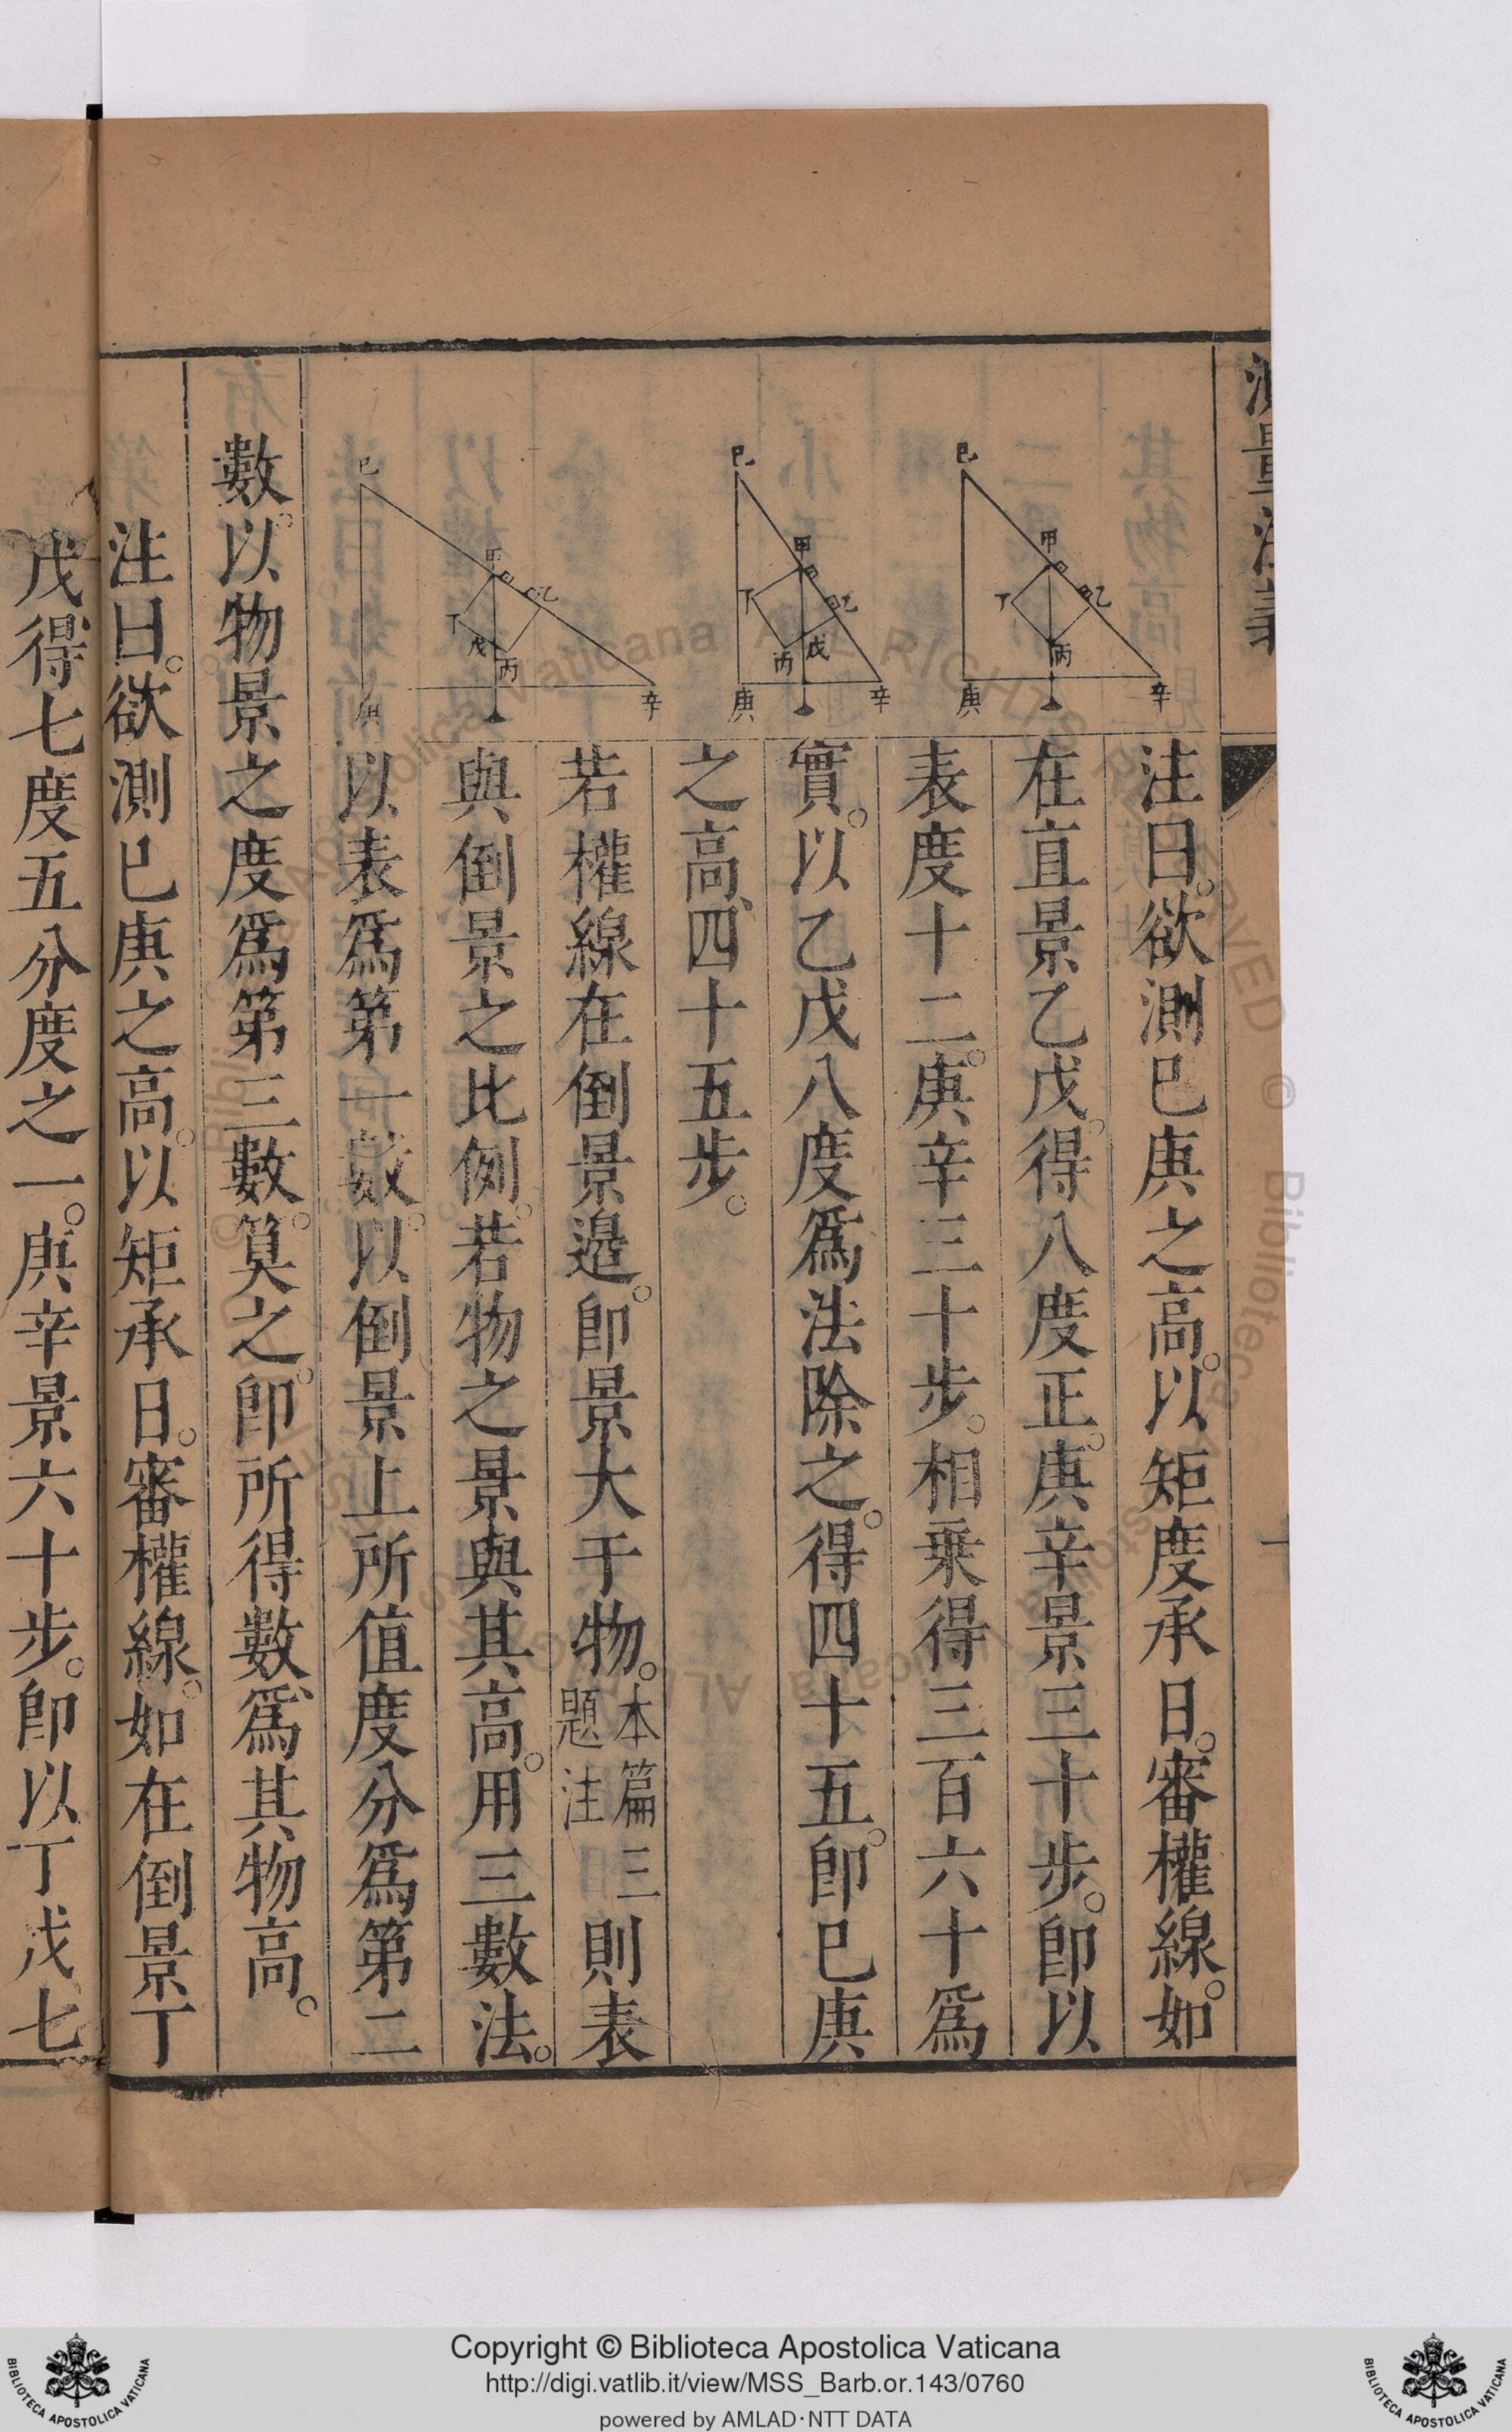 測量法義
注曰。欲測巳庚之高。以矩度承日。審權線。如
在直景乙戊。得八度正。庚辛景三十步。卽以
表度十二。庚辛三十步。相乗得三百六十爲
實。以乙戊八度爲法除之。得四十五。卽巳庚
之高、四十五步。
若權線在倒景邉。卽景大于物。本篇三題注則表
與倒景之比例。若物之景與其高。用三數法。
以表爲第一數。以倒景上所值度分爲第二
數。以物景之度爲第三數。算之。卽所得數、爲其物高。
注曰。欲測巳庚之高。以矩承日。審權線。如在倒景丁
戊得七度五分度之一。庚辛景六十步。卽以丁戊七
巳
甲
乙
丁
丙
庚
辛
巳
甲
乙
丁
丙
戊
庚
辛
巳
甲
乙
丁
戊
丙
庚
辛
© Biblioteca Apostolica Vaticana ALL RIGHTS RESERVED
Copyright © Biblioteca Apostolica Vaticana
http://digi.vatlib.it/view/MSS_Barb.or.143/0760
powered by AMLAD·NTT DATA
BIBLIOTECA APOSTOLICA VATICANA
BIBLIOTECA APOSTOLICA VATICANA